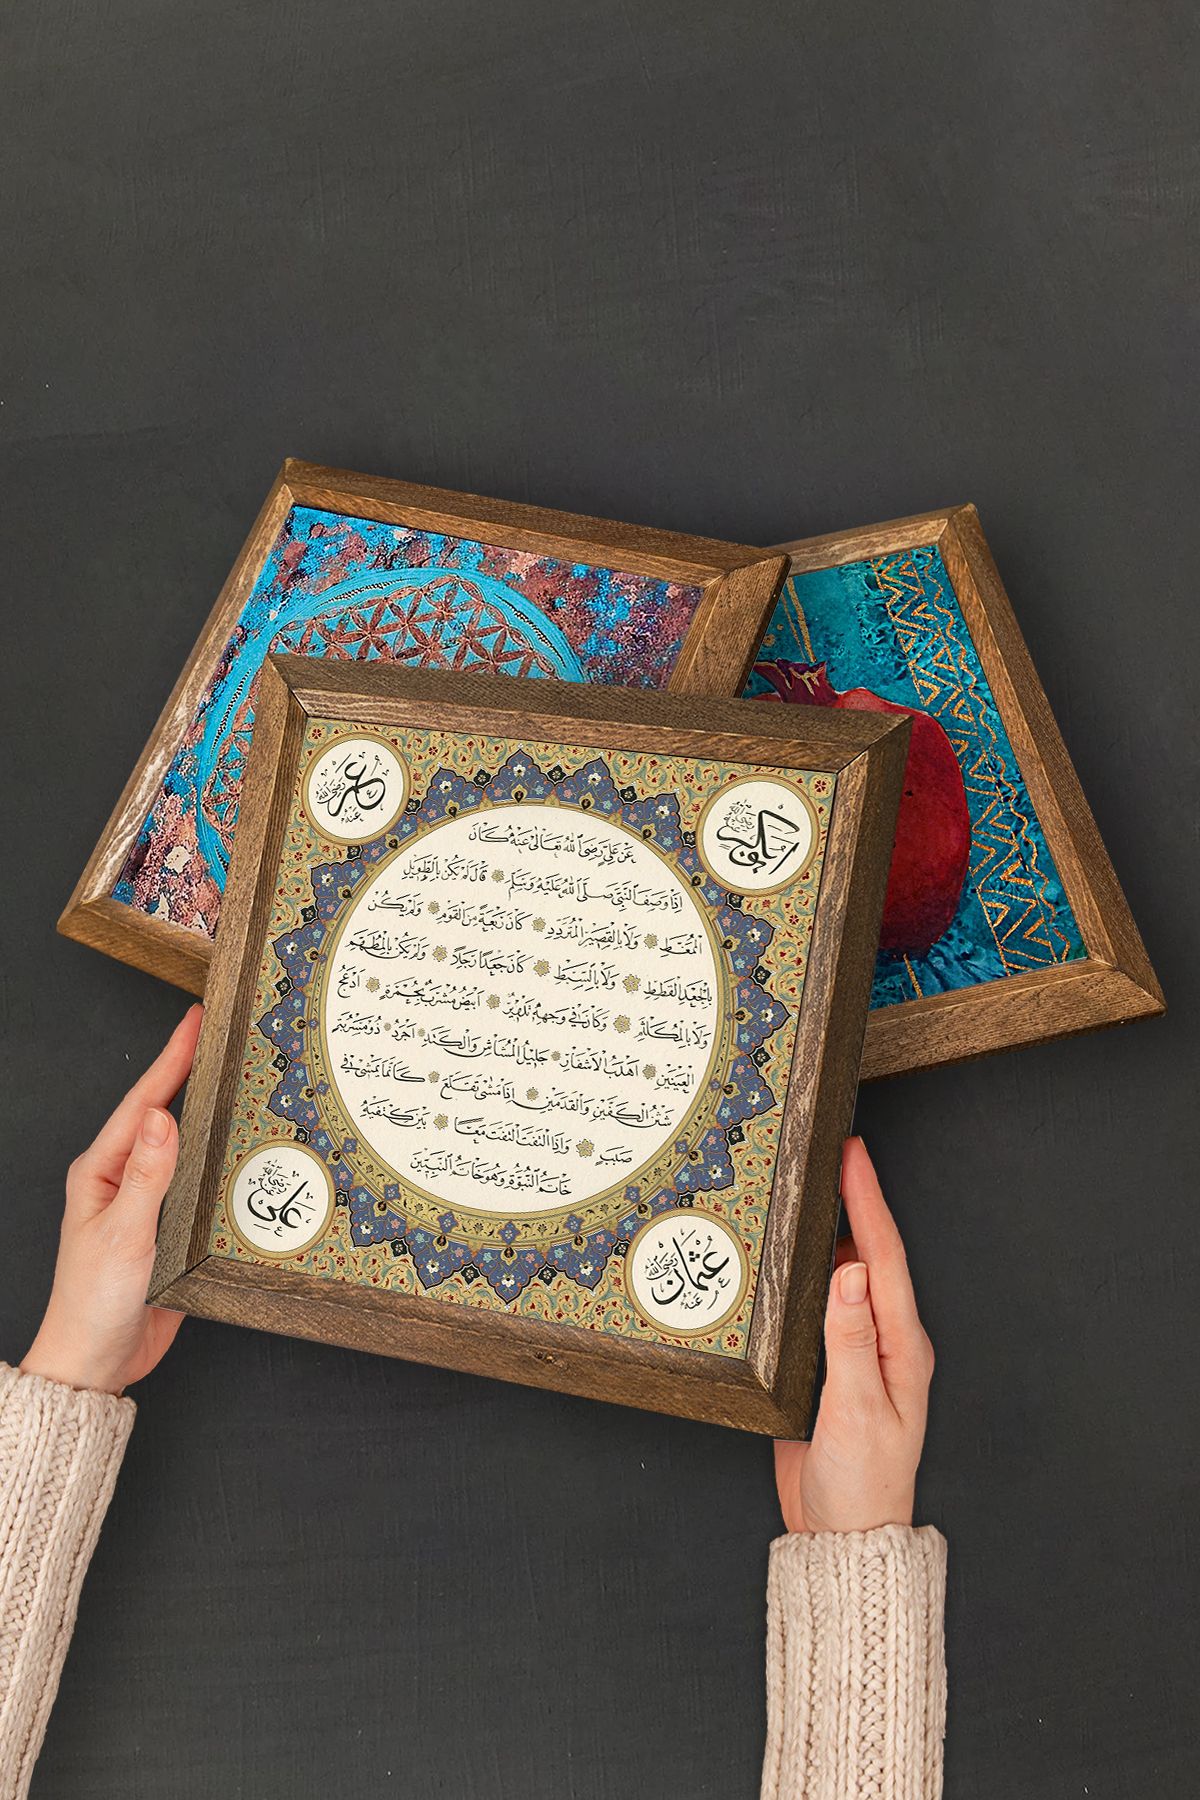 أبو بكر رضي الله عنه
عمر رضي الله عنه
عَنْ عَلِيٍّ رَضِيَ اللّٰهُ تَعَالٰى عَنْهُ كَانَ
اِذَا وَصَفَ النَّبِيَّ صَلَّى اللّٰهُ عَلَيْهِ وَسَلَّمَ قَالَ لَمْ يَكُنْ بِالطَّوِيلِ
الْمُمَّغِطِ وَلَا بِالْقَصِيرِ الْمُتَرَدِّدِ كَانَ رَبْعَةً مِنَ الْقَوْمِ وَلَمْ يَكُنْ
بِالْجَعْدِ الْقَطَطِ وَلَا بِالسَّبْطِ كَانَ جَعْدًا رَجِلًا وَلَمْ يَكُنْ بِالْمُطَهَّمِ
وَلَا بِالْمُكَلْثَمِ وَكَانَ فِي وَجْهِهِ تَدْوِيرٌ اَبْيَضُ مُشْرَبٌ بِحُمْرَةٍ اَدْعَجُ
الْعَيْنَيْنِ اَهْدَبُ الْاَشْفَارِ جَلِيلُ الْمُشَاشِ وَالْكَتَدِ اَجْرَدُ ذُو مَسْرُبَةٍ
شَثْنُ الْكَفَّيْنِ وَالْقَدَمَيْنِ اِذَا مَشٰى تَقَلَّعَ كَاَنَّمَا يَمْشِي فِي
صَبَبٍ وَاِذَا الْتَفَتَ الْتَفَتَ مَعًا بَيْنَ كَتِفَيْهِ
خَاتَمُ النُّبُوَّةِ وَهُوَ خَاتَمُ النَّبِيّٖنَ
عثمان رضي الله عنه
علي رضي الله عنه